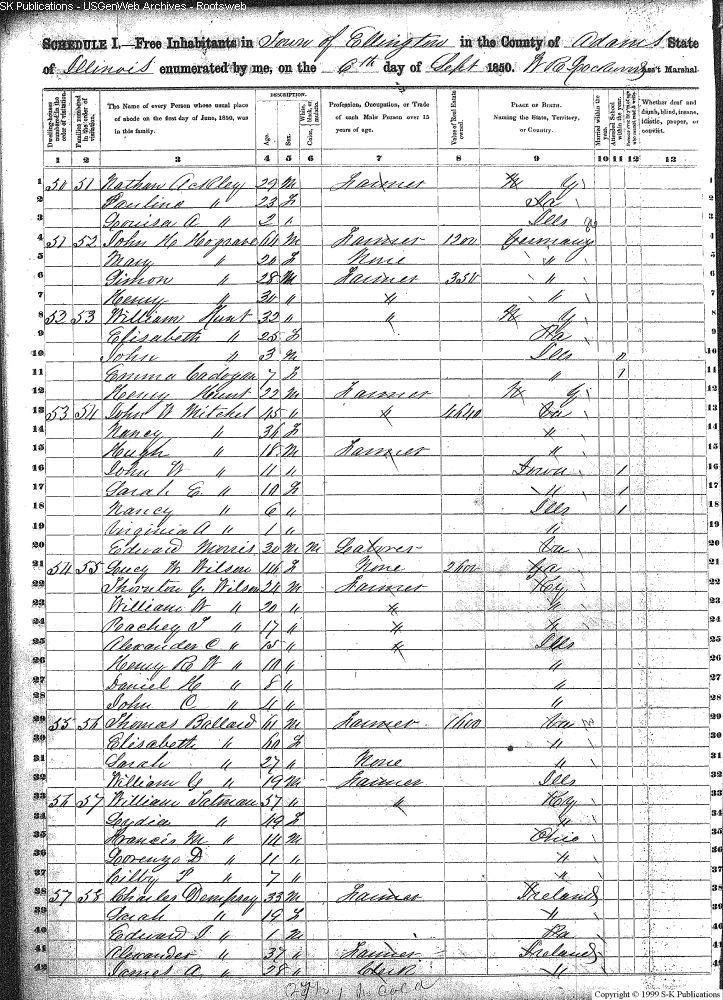 SK Publications - USGenWeb Archives - Rootsweb
SCHEDULE I.—Free Inhabitants in Town of Ellington in the County of Adams State
of Illinois enumerated by me, on the 6th day of Sept 1850. Ass't Marshal
Dwelling-houses numbered in the order of visitation.
Families numbered in the order of visitation.
The Name of every Person whose usual place of abode on the first day of June, 1850, was in this family.
DESCRIPTION.
Age.
Sex.
White, black, or mulatto.
Color,
Profession, Occupation, or Trade of each Male Person over 15 years of age.
Value of Real Estate owned.
PLACE OF BIRTH. Naming the State, Territory, or Country.
Married within the year.
Attended School within the year.
Whether deaf and dumb, blind, insane, idiotic, pauper, or convict.
1 2 3 4 5 6 7 8 9 10 11 12 13
1 50 51 Nathan Ackley 29 M Farmer N Y 1
2 Paulina " 23 F Pa 2
3 Louisa A " 2 " Ills 3
4 51 52 John H Hograve 64 M Farmer 1200 Germany 4
5 Mary " 20 F None " 5
6 Simon " 28 M Farmer 350 " 6
7 Henry " 30 " " " 7
8 52 53 William Hunt 32 " " N Y 8
9 Elisabeth " 25 F Pa 9
10 John " 3 M Ills " 10
11 Emma Cadogan 7 F " 1 11
12 Henry Hunt 22 M Farmer N Y 12
13 53 54 John W Mitchel 45 " " 4640 Va 13
14 Nancy " 36 F " 14
15 Hugh " 18 M Farmer " 15
16 John W " 11 " Iowa 1 16
17 Sarah E " 10 F " 1 17
18 Nancy " 6 " Ills 1 18
19 Virginia A " 1 " " 19
20 Edward Morris 30 M M Laborer Va 20
21 54 55 Lucy W Wilson 46 F None 2600 Va 21
22 Thornton G Wilson 24 M Farmer Ky 22
23 William W " 20 " " " 23
24 Peachey T " 17 " " " 24
25 Alexander C " 15 " " Ills 25
26 Henry B W " 10 " " 26
27 Daniel H " 8 " " 27
28 John C " 4 " " 28
29 55 56 Thomas Ballard 61 M Farmer 1600 Va 29
30 Elisabeth " 60 F " 30
31 Sarah " 27 " None " 31
32 William G " 19 M Farmer Ills 32
33 56 57 William Tatman 57 " " Ky 33
34 Lydia " 49 F " 34
35 Francis M " 14 M Ohio 35
36 Lorenzo D " 11 " " 36
37 Cilby T " 7 " " 37
38 57 58 Charles Dempsey 33 M Farmer Ireland 38
39 Sarah " 19 F " 39
40 Edward J " 1 M Pa 40
41 Alexander " 37 " Farmer Ireland 41
42 James A " 28 " Clerk " 42
Copyright © 1999 S-K Publications